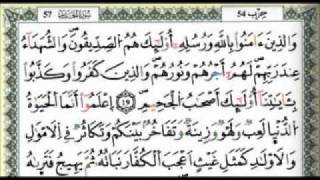 حزب 54 سورة الحديد 57
وَالَّذِينَ ءَامَنُوا بِاللَّهِ وَرُسُلِهِ أُولَٰئِكَ هُمُ الصِّدِّيقُونَ وَالشُّهَدَاءُ
عِندَ رَبِّهِمْ لَهُمْ أَجْرُهُمْ وَنُورُهُمْ وَالَّذِينَ كَفَرُوا وَكَذَّبُوا
بِـَٔايَٰتِنَا أُولَٰئِكَ أَصْحَٰبُ الْجَحِيمِ ١٩ اعْلَمُوا أَنَّمَا الْحَيَوٰةُ
الدُّنْيَا لَعِبٌ وَلَهْوٌ وَزِينَةٌ وَتَفَاخُرٌ بَيْنَكُمْ وَتَكَاثُرٌ فِي الْأَمْوَٰلِ
وَالْأَوْلَٰدِ كَمَثَلِ غَيْثٍ أَعْجَبَ الْكُفَّارَ نَبَاتُهُ ثُمَّ يَهِيجُ فَتَرَىٰهُ